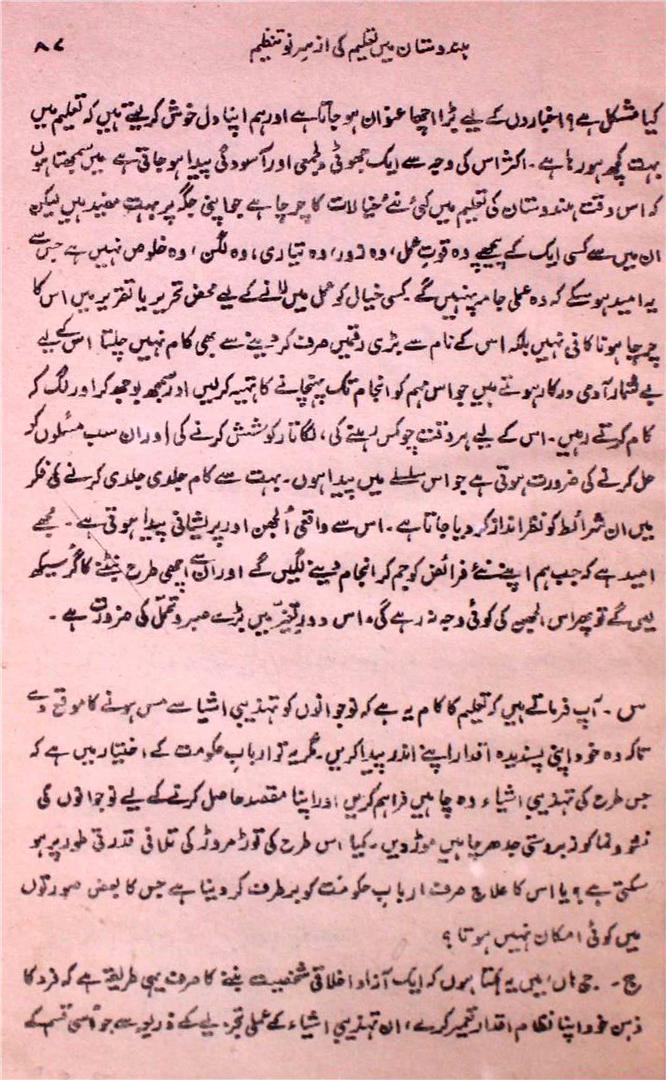 ہندوستان میں تعلیم کی از سرِ نو تنظیم ۸۷
کیا مشکل ہے؟ اخباروں کے لیے بڑا اچھا عنوان ہو جاتا ہے اور ہم اپنا دل خوش کر لیتے ہیں کہ تعلیم میں
بہت کچھ ہو رہا ہے۔ اکثر اس کی وجہ سے ایک جھوٹی دلجمعی اور آسودگی پیدا ہو جاتی ہے میں سمجھتا ہوں
کہ اس وقت ہندوستان کی تعلیم میں کئی نئے خیالات کا چرچا ہے جو اپنی جگہ پر بہت مفید ہیں لیکن
ان میں سے کسی ایک کے پیچھے وہ قوتِ عمل، وہ زور، وہ تیاری، وہ لگن، وہ خلوص نہیں ہے جس سے
یہ امید ہو سکے کہ وہ عملی جامہ پہنیں گے۔ کسی خیال کو عمل میں لانے کے لیے محض تحریر یا تقریر میں اس کا
چرچا ہونا کافی نہیں بلکہ اس کے نام سے بڑی رقمیں صرف کر دینے سے بھی کام نہیں چلتا اس کے لیے
بے شمار آدمی درکار ہوتے ہیں جو اس مہم کو انجام تک پہنچانے کا تہیہ کر لیں اور سمجھ بوجھ کر اور لگ کر
کام کرتے رہیں۔ اس کے لیے ہر وقت چوکس رہنے کی، لگاتار کوشش کرنے کی اور ان سب مسئلوں کو
حل کرنے کی ضرورت ہوتی ہے جو اس سلسلے میں پیدا ہوں۔ بہت سے کام جلدی جلدی کرنے کی فکر
میں ان شرائط کو نظر انداز کر دیا جاتا ہے۔ اس سے واقعی اُلجھن اور پریشانی پیدا ہوتی ہے۔ مجھے
امید ہے کہ جب ہم اپنے نئے فرائض کو جم کر انجام دینے لگیں گے اور ان سے اچھی طرح نپٹنے کا گُر سیکھ
لیں گے تو پھر اس الجھن کی کوئی وجہ نہ رہے گی۔ اس دورِ تغیّر میں بڑے صبر و تحمّل کی ضرورت ہے۔
س۔ آپ فرماتے ہیں کہ تعلیم کا کام یہ ہے کہ نوجوانوں کو تہذیبی اشیا سے مس ہونے کا موقع دے
تاکہ وہ خود اپنی پسندیدہ اقدار اپنے اندر پیدا کریں۔ مگر یہ تو اربابِ حکومت کے اختیار میں ہے کہ
جس طرح کی تہذیبی اشیاء وہ چاہیں فراہم کریں اور اپنا مقصد حاصل کرنے کے لیے نوجوانوں کی
نشوونما کو زبردستی جدھر چاہیں موڑ دیں۔ کیا اس طرح کی توڑ مروڑ کی تلافی قدرتی طور پر ہو
سکتی ہے؟ یا اس کا علاج صرف اربابِ حکومت کو برطرف کر دینا ہے جس کا بعض صورتوں
میں کوئی امکان نہیں ہوتا؟
ج۔ جی ہاں، میں یہ کہتا ہوں کہ ایک آزاد اخلاقی شخصیت بننے کا صرف یہی طریقہ ہے کہ فرد کا
ذہن خود اپنا نظامِ اقدار تعمیر کرے، ان تہذیبی اشیاء کے عملی تجربے کے ذریعہ سے جو اُسی قسم کے